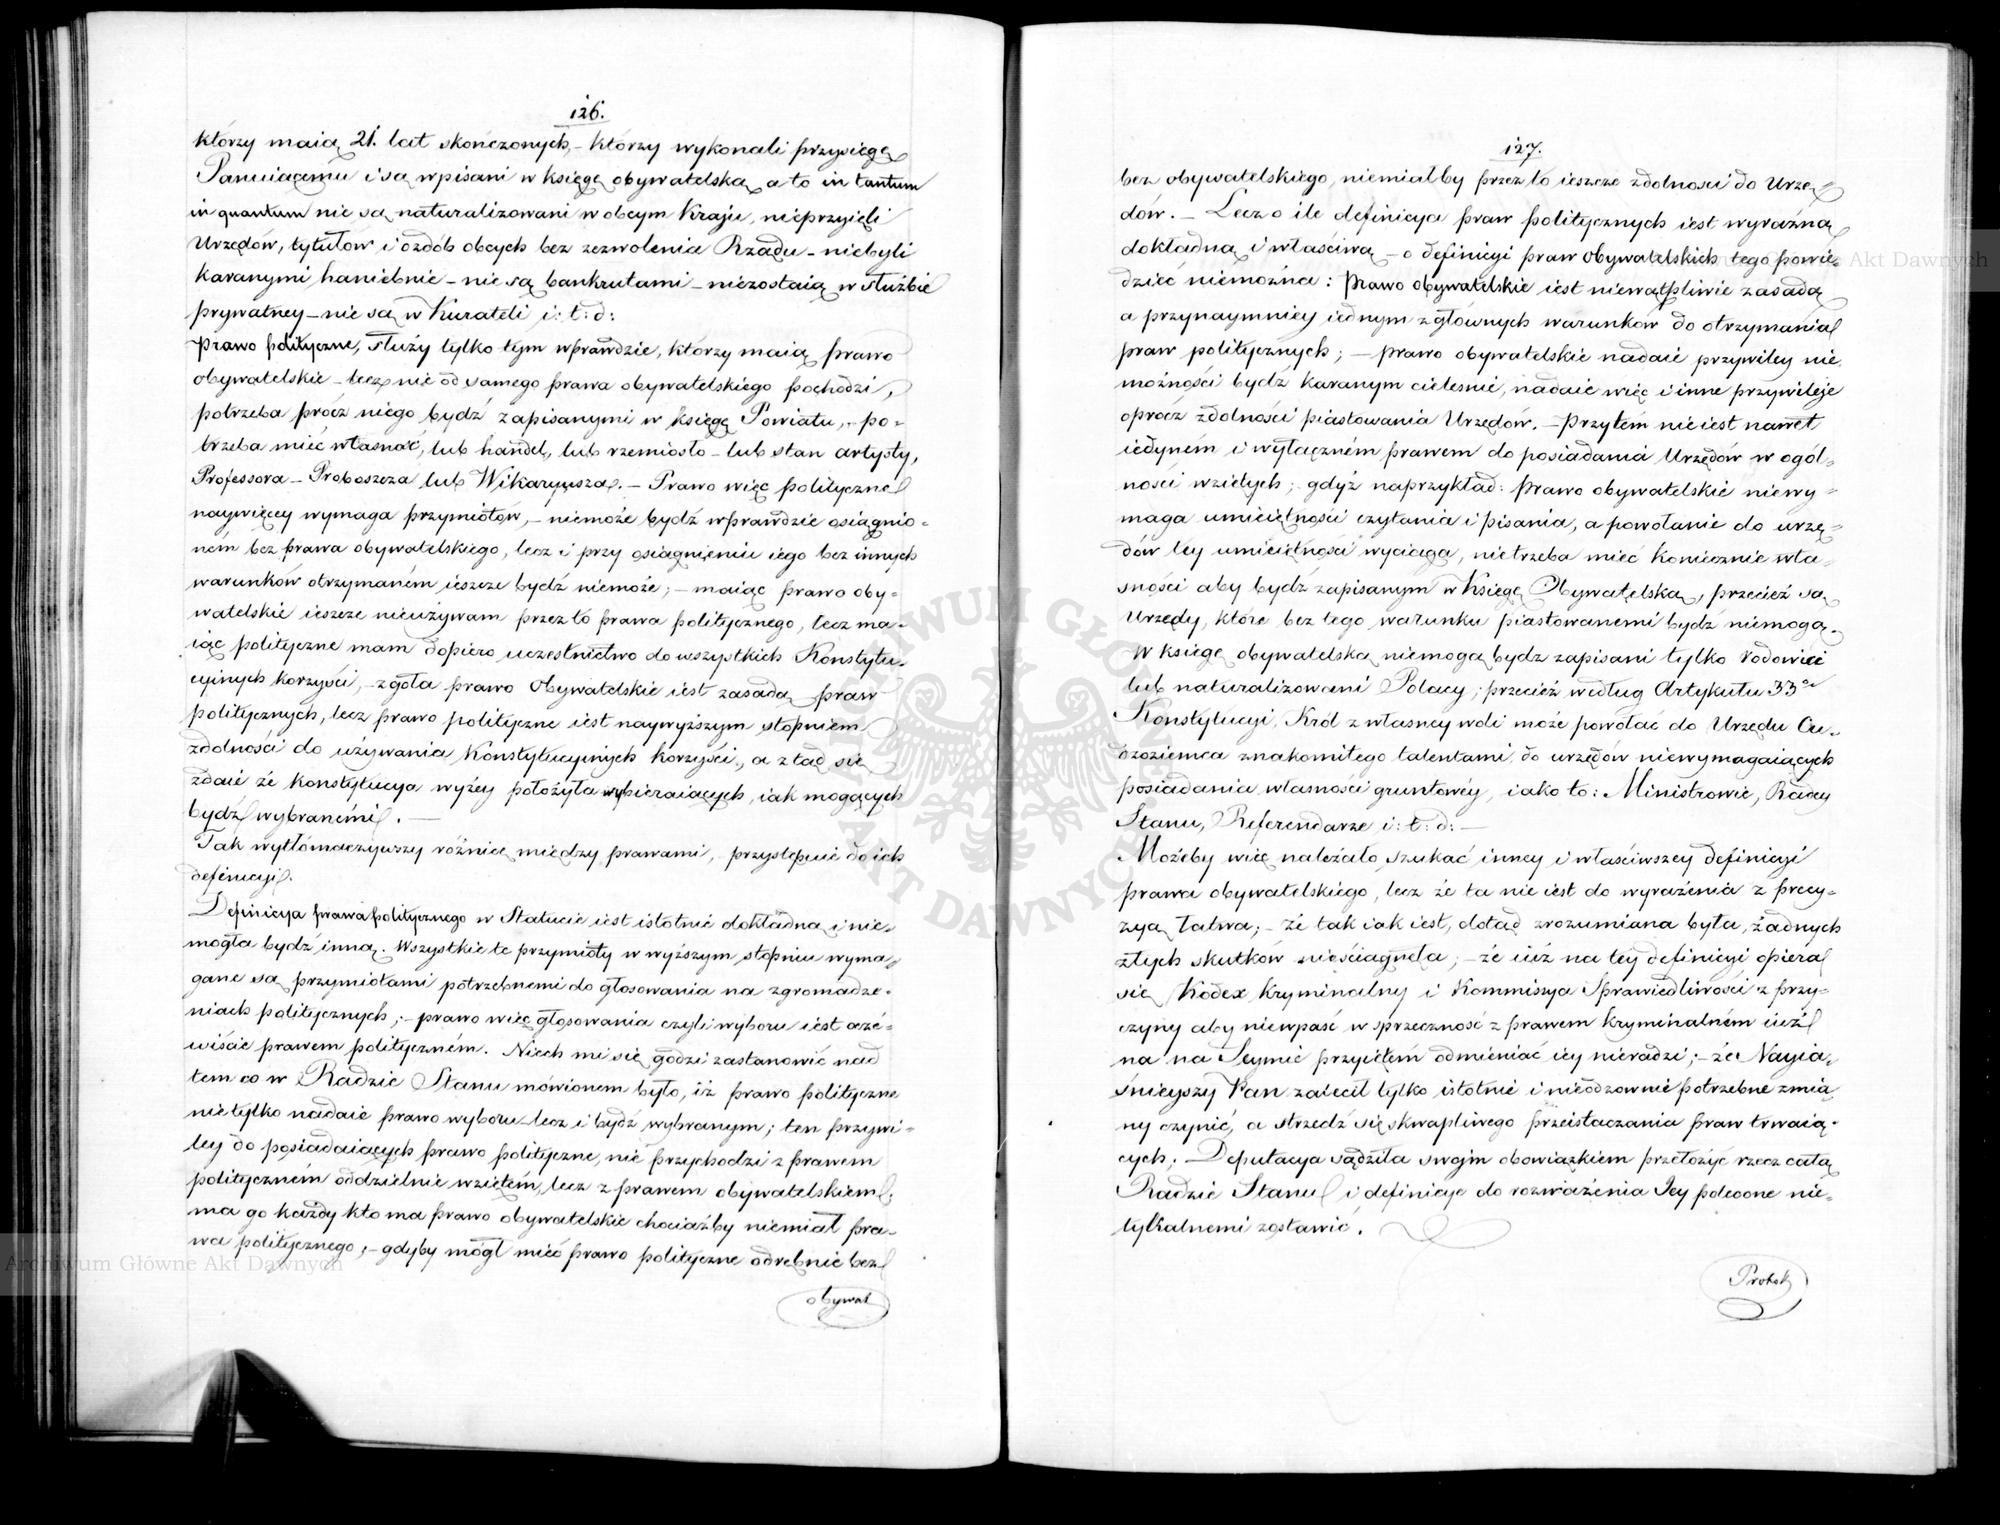 126.
którzy maią 21. lat skończonych, - którzy wykonali przysięgę
Panuiącemu i są wpisani w księgę obywatelską, a to in tantum
in quantum nie są naturalizowani w obcym Kraju, nieprzyięli
Urzędów, tytułow i ozdób obcych bez zezwolenia Rządu - niebyli
karanymi haniebnie - nie są bankrutami - niezostaią w służbie
prywatney - nie są w Kurateli i: t: d:
Prawo polityczne, służy tylko tym wprawdzie, którzy maią prawo
obywatelskie - lecz nie od samego prawa obywatelskiego pochodzi,
potrzeba prócz niego bydź zapisanymi w księgę Powiatu, - po-
trzeba mieć własność, lub handel, lub rzemiosło - lub stan artysty,
Professora - Proboszcza lub Wikaryusza. - Prawo więc polityczne
naywięcey wymaga przymiotów, - niemoże bydź wprawdzie osiągnio-
ném bez prawa obywatelskiego, lecz i przy osiągnieniu iego bez innych
warunków otrzymaném ieszcze bydź niemoże; - maiąc prawo oby-
watelskie ieszcze nieużywam przez to prawa politycznego, lecz ma-
iąc polityczne mam dopiero uczestnictwo do wszystkich Konstytu-
cyinych korzyści, - zgoła prawo Obywatelskie iest zasadą praw
politycznych, lecz prawo polityczne iest naywyższym stopniem
zdolności do używania Konstytucyinych korzyści, a ztąd się
zdaie że Konstytucya wyżey położyła wybieraiących, iak mogących
bydź wybranémi. —
Tak wytłómaczywszy różnicę między prawami, przystępuię do ich
definicyi.
Definicya prawa politycznego w Statucie iest istotnie dokładna i nie-
mogła bydź inną. Wszystkie te przymioty w wyższym stopniu wyma-
gane są przymiotami potrzebnemi do głosowania na zgromadze-
niach politycznych; - prawo więc głosowania czyli wyboru iest oczé-
wiście prawem polityczném. Niech mi się godzi zastanowić nad
tem co w Radzie Stanu mówionem było, iż prawo polityczne
nietylko nadaie prawo wyboru lecz i bydź wybranym; ten przywi-
ley do posiadaiących prawo polityczne, nie przychodzi z prawem
polityczném oddzielnie wziętém, lecz z prawem obywatelskiem,
ma go każdy kto ma prawo obywatelskie chociażby niemiał pra-
wa politycznego; - gdyby mógł mieć prawo polityczne odrębnie bez
obywat
127.
bez obywatelskiego, niemiałby przez to ieszcze zdolności do Urzę-
dów. - Lecz o ile definicya praw politycznych iest wyraźną
dokładną i właściwą - o definicyi praw obywatelskich tego powie-
dzieć niemożna: Prawo obywatelskie iest niewątpliwie zasadą
a przynaymniey iednym z głównych warunków do otrzymania
praw politycznych; - prawo obywatelskie nadaie przywiley nie
możności bydź karanym cieleśnie, nadaie więc i inne przywileje
oprócz zdolności piastowania Urzędów. - Przytém nie iest nawet
iedyném i wyłączném prawem do posiadania Urzędów w ogól-
ności wziętych; gdyż naprzykład: prawo obywatelskie niewy-
maga umieiętności czytania i pisania, a powołanie do urzę-
dów tey umieiętności wyciąga, nietrzeba mieć koniecznie wła-
sności aby bydź zapisanym w Księgę Obywatelską, przecież są
Urzędy, które bez tego warunku piastowanemi bydź niemogą.
W księgę obywatelską niemogą bydz zapisani tylko rodowici
lub naturalizowani Polacy; przecież według Artykułu 33go
Konstytucyi, Król z własney woli może powołać do Urzędu Cu-
dzoziemca znakomitego talentami, do urzędów niewymagaiących
posiadania własności gruntowéy, iako to: Ministrowie, Radcy
Stanu, Referendarze i: t: d: -
Możeby więc należało szukać inney i właściwszey definicyi
prawa obywatelskiego, lecz że ta nie iest do wyrażenia z precy-
zyą łatwa; - że tak iak iest, dotąd zrozumiana była, żadnych
złych skutków nieściągnęła; - że iuż na tey definicyi opiera
się Kodex kryminalny i Kommissya Sprawiedliwości z przy-
czyny aby niewpaść w sprzeczność z prawem kryminalném iuż
na na Seymie przyiętém odmieniać iey nieradzi; - że Nayia-
śnieyszy Pan zalecił tylko istotnie i nieodzownie potrzebne zmia
ny czynić, a strzedz się skwapliwego przeistaczania praw trwaią-
cych; Deputacya sądziła swoim obowiązkiem przełożyć rzecz całą
Radzie Stanu i definicye do rozważenia Jey polecone nie-
tykalnemi zostawić.
Protok
Archiwum Główne Akt Dawnych
Akt Dawnych
ARCHIWUM GŁÓWNE AKT DAWNYCH